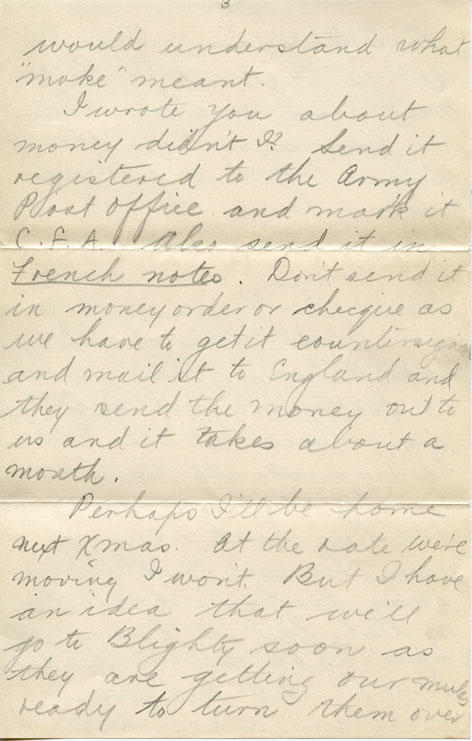 3
would understand what
"moke" meant.
I wrote you about
money didn't I? Send it
registered to the Army
Post Office and mark it
C.F.A. Also send it in
French notes. Don't send it
in money order or checque as
we have to get it countersign
and mail it to England and
they send the money out to
us and it takes about a
month.
Perhaps I'll be home
next Xmas. At the rate we're
moving I won't. But I have
an idea that we'll
go to Blighty soon as
they are getting our mules
ready to turn them over